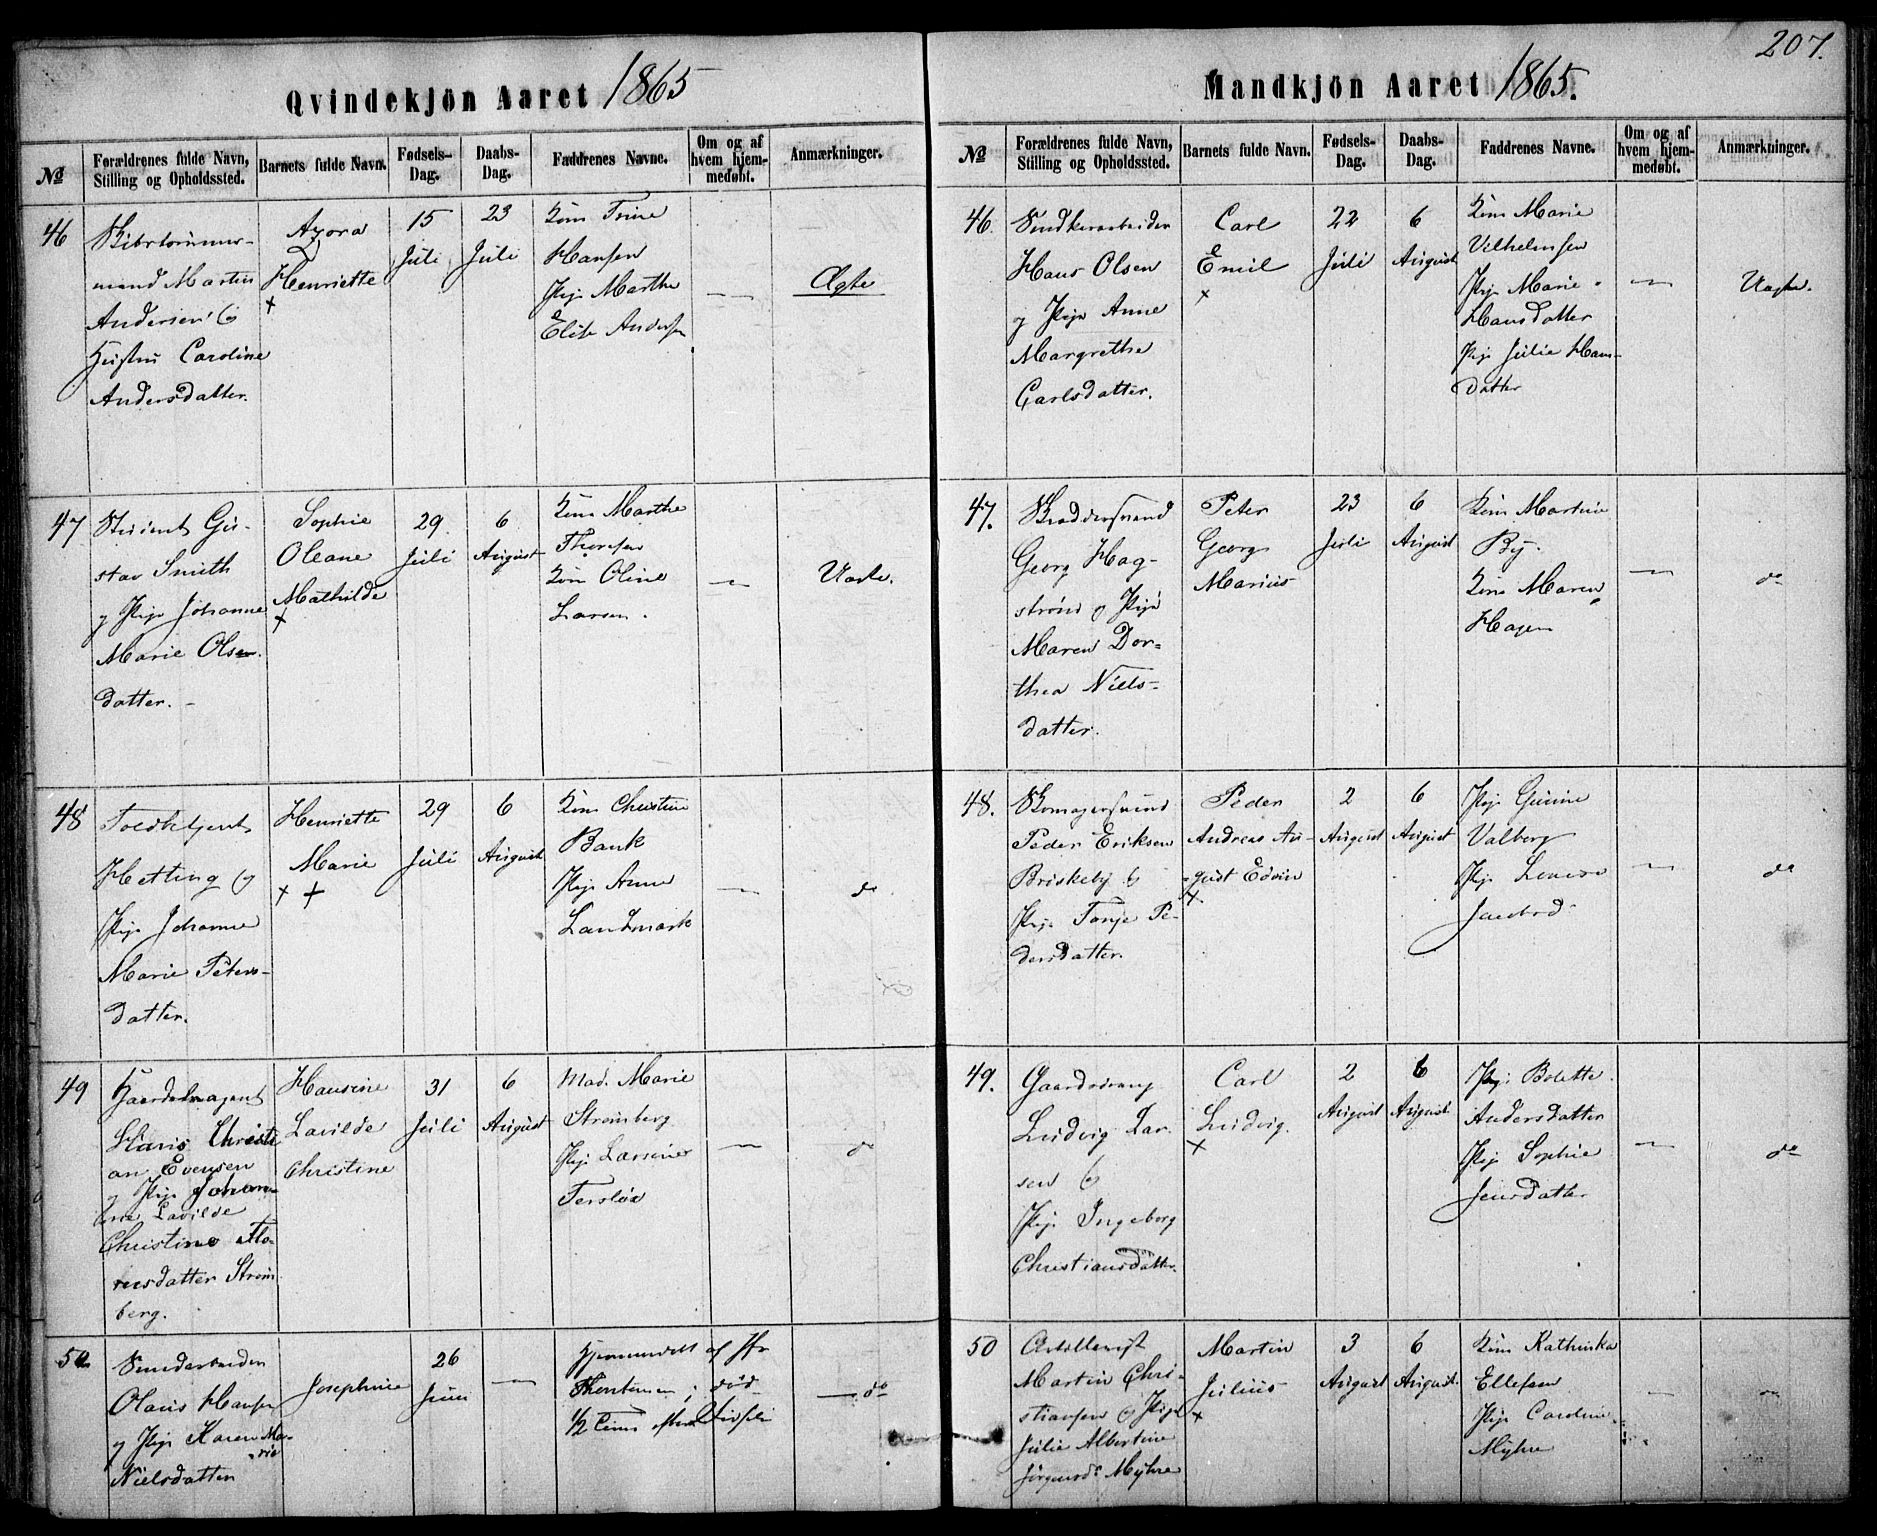 207.
Qvindekjön Aaret 1865
No
Forældrenes fulde Navn, Stilling og Opholdssted.
Barnets fulde Navn.
Fødsels-Dag.
Daabs-Dag.
Faddrenes Navne.
Om og af hvem hjem-medøbt.
Anmærkninger.
46
mand Martin
Andersen &
Hustru Caroline
Andersdatter.
Azora
Henriette
+
15
Juli
23
Juli
Kone Trine
Hansen
Pige Marthe
Elise Andersen
—
Ægte
47
Student Gu-
stav Smith
og Pige Johanne
Marie Olsen
datter. -
Sophie
Oleane
Mathilde
+
29
Juli
6
August
Kone Marthe
Thoresen
Kone Oline
Larsen.
—
Uægte.
48
Toldbetjent
Hetting &
Pige Johanne
Marie Peters-
datter.
Henriette
Marie
+ +
29
Juli
6
August
Kone Christine
Bank
Pige Anne
Landmark
—
do
49
Hans Christi
an Evensen
og Pige Johan-
Lavilde
Christine Tho-
resdatter Strøm
berg.
Hansine
Lavilde
Christine
31
Juli
6
August
Mad. Marie
Strømberg
Pige Larsine
—
do
50
Olaus Hansen
og Pige Karen Ma-
rie
Nielsdatter
Josephine
26
Juni
—
Hjemmedøbt af Jfr
Thorstensen; død
1/2 Time efter Fødselen
— do
Mandkjön Aaret 1865.
No
Forældrenes fulde Navn, Stilling og Opholdssted.
Barnets fulde Navn.
Fødsels-Dag.
Daabs-Dag.
Faddrenes Navne.
Om og af hvem hjem-medøbt.
Anmærkninger.
46.
Hans Olsen
og Pige Anne
Margrethe
Carlsdatter.
Carl
Emil
+
22
Juli
6
August
Kone Marie
Vilhelmsen
Pige Marie
Hansdatter
Pige Julie Hans-
datter
—
Uægte.
47.
Skræddersvend
Georg Hag-
strøm og Pige
Maren Dor-
thea Niels-
datter.
Peter
Georg
Marius
23
Juli
6
August
Kone Martine
By.
Kone Maren
Hagen
—
do
48.
Skomagersvend
Peder Eriksen
Briskeby &
Pige Tonje Pe-
dersdatter.
Peder
Andreas Au-
gust Edvin
+
2
August
6
August
Pige Gunine
Valborg
Pige Lovise
—
do
49.
Gaardsdreng
Ludvig Lar-
sen &
Pige Ingeborg
Christiansdatter.
Carl
Ludvig.
+
2
August
6
August
Pige Bolette
Andersdatter
Pige Sophie
Jensdatter
—
do
50
Artillerist
Martin Chri-
stiansen & Pige
Julie Albertine
Jørgensdr Myhre
Martin
Julius
+
3
August
6
August.
Kone Kathinka
Ellefsen
Pige Caroline
Myhre
—
do